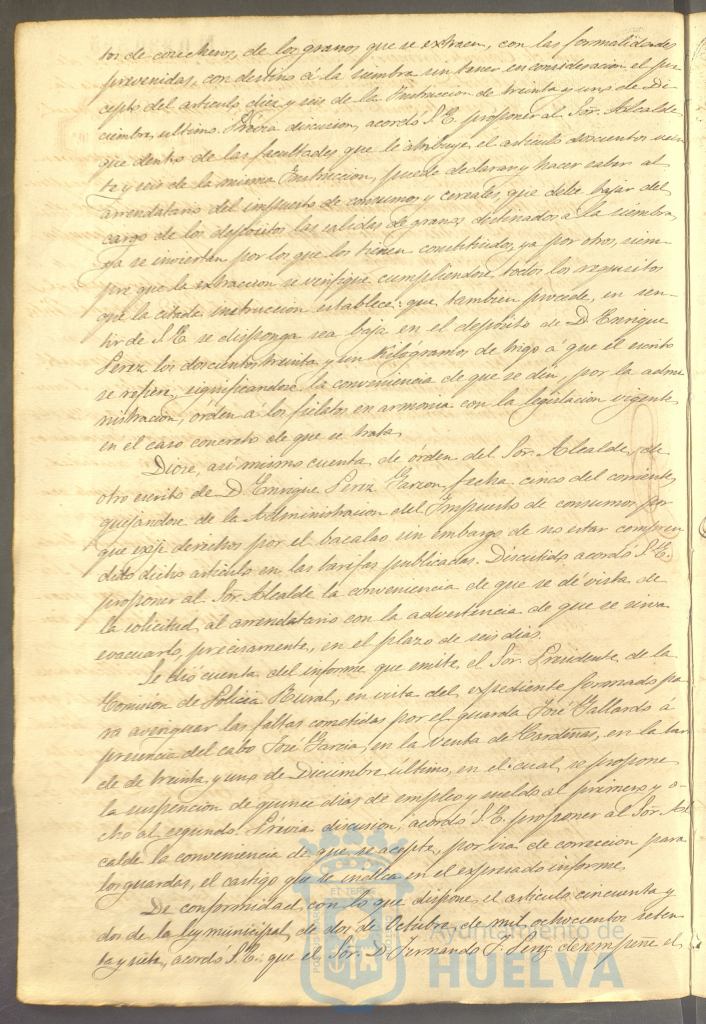 tos de cosecheros, de los granos que se extraen, con las formalidades
prevenidas, con destino á la siembra sin tener en consideracion el pre-
cepto del articulo diez y seis de la Instruccion de treinta y uno de Di-
ciembre último. Prévia discusion, acordó S.E. proponer al Sor. Alcalde
que dentro de las facultades que le atribuye el articulo doscientos vein
te y seis de la misma Instruccion, puede declarar y hacer saber al
arrendatario del impuesto de consumos y cereales, que debe bajar del
cargo de los depósitos las salidas de granos destinados a la siembra,
ya se inviertan por los que los tienen constituidos, ya por otros, siem-
pre que la extraccion se verifique cumpliendose todos los requisitos
que la citada instruccion establece: que tambien procede, en sen-
tir de S.E. se disponga sea baja en el depósito de D. Enrique
Perez los doscientos treinta y un kilógramos de trigo a que el escrito
se refiere, significandose la conveniencia de que se den, por la admi
nistracion, órden á los fielatos en armonia con la legislacion vigente
en el caso concreto de que se trata.
Diose, asi mismo cuenta, de órden del Sor. Alcalde, de
otro escrito de D. Enrique Perez Garzon, fecha cinco del corriente,
quejandose de la Administracion del Impuesto de consumos por
que exije derechos por el bacalao sin embargo de no estar compren
dido dicho articulo en las tarifas publicadas. Discutido acordó S.E.
proponer al Sor. Alcalde la conveniencia de que se dé vista de
la solicitud al arrendatario con la advertencia de que se sirva
evacuarlo, precisamente, en el plazo de seis dias.
Se dió cuenta del informe que emite el Sor. Presidente de la
Comision de Policia Rural, en vista del expediente formado pa-
ra averiguar las faltas cometidas por el guarda José Gallardo á
presencia del cabo José Garcia, en la venta de Cardeñas, en la tar
de de treinta y uno de Diciembre último, en el cual se propone
la suspencion de quince dias de empleo y sueldo al primero y o-
cho al segundo. Prévia discusion, acordó S.E. proponer al Sor. Al
calde la conveniencia de que se acepte, por via de correccion para
los guardas, el castigo que se indica en el expresado informe.
De conformidad con lo que dispone el articulo cincuenta y
dos de la ley municipal de dos de Octubre de mil ochocientos seten-
ta y siete, acordó S.E. que el Sor. D. Fernando F. Perez desempeñe el
Ayuntamiento de
HUELVA